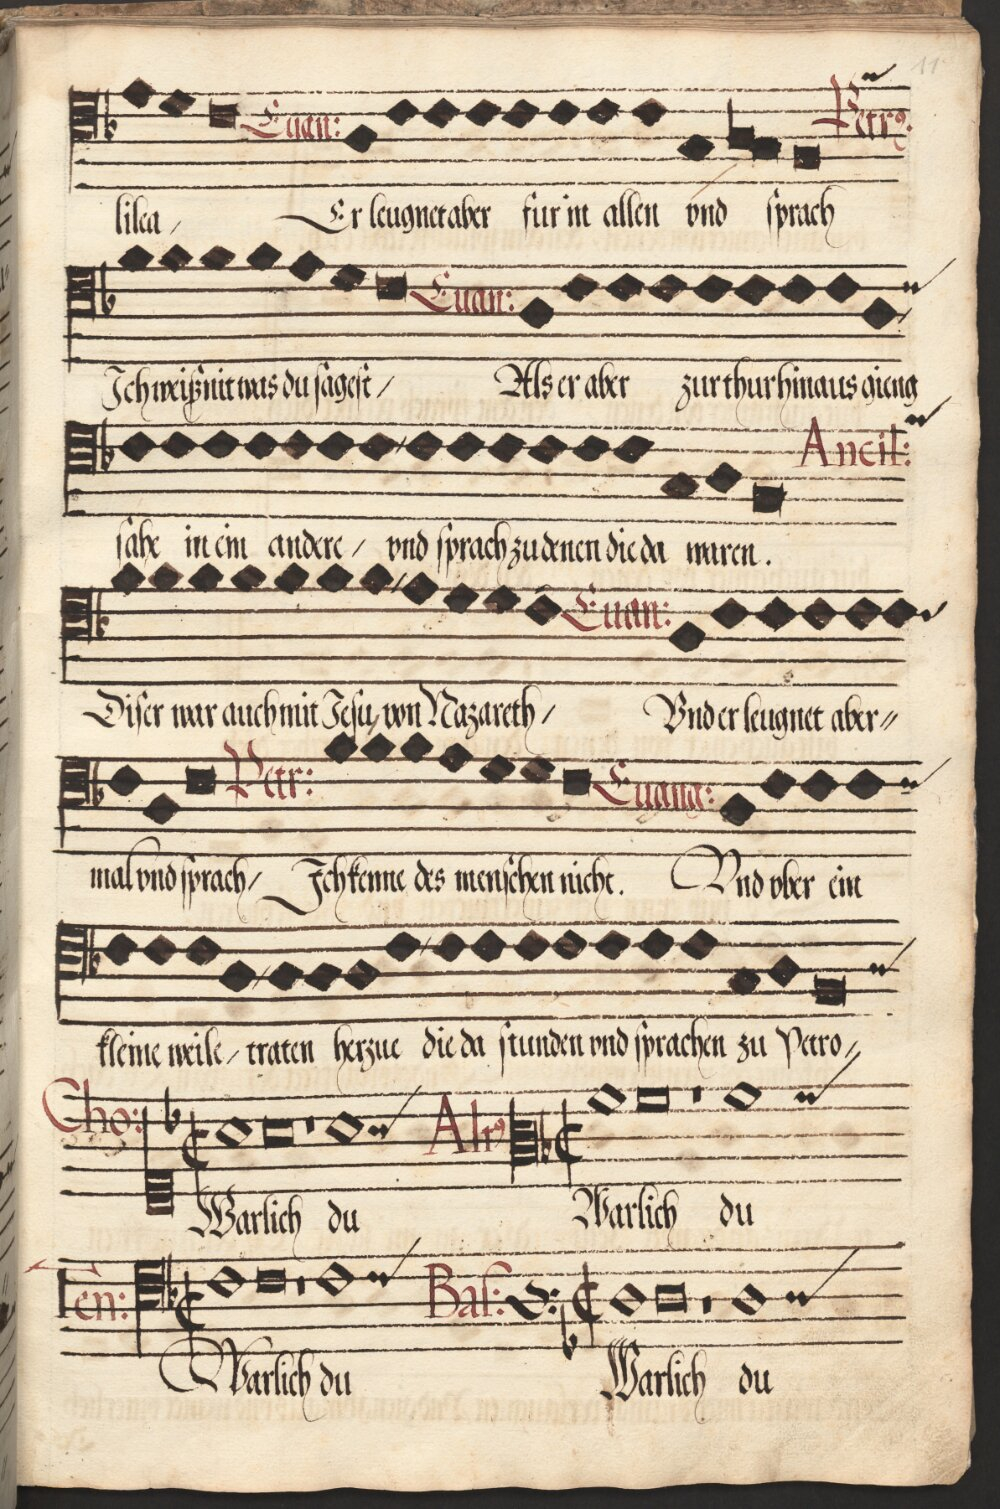 11
Euan: Petrꝰ:
lilea / Er leugnet aber fur in allen vnd sprach
Euan:
Ich weiß nit was du sagest / Als er aber zur thur hinaus gieng
Ancil:
sahe in ein andere / vnd sprach zu denen die da waren.
Euan:
Diser war auch mit Jesu, von Nazareth / Vnd er leugnet aber //
Petr: Euang:
mal vnd sprach / Ich kenne des menschen nicht. Vnd vber ein
kleine weile / traten herzue die da stunden vnd sprachen zu Petro //
Cho: Altꝰ
Warlich du Warlich du
Ten: Bas:
Warlich du Warlich du